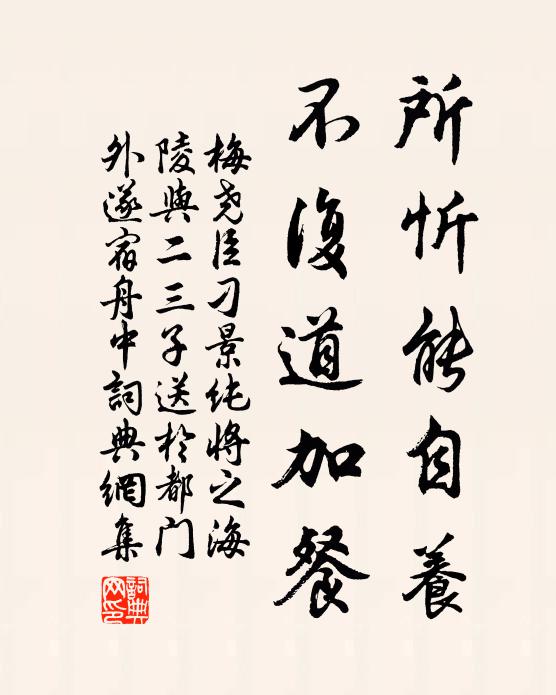 所忻能自養
不復道加餐
梅堯臣刁景純將之海
陵與二三子送於都門
外遂宿舟中詞典網集
詞典
网印